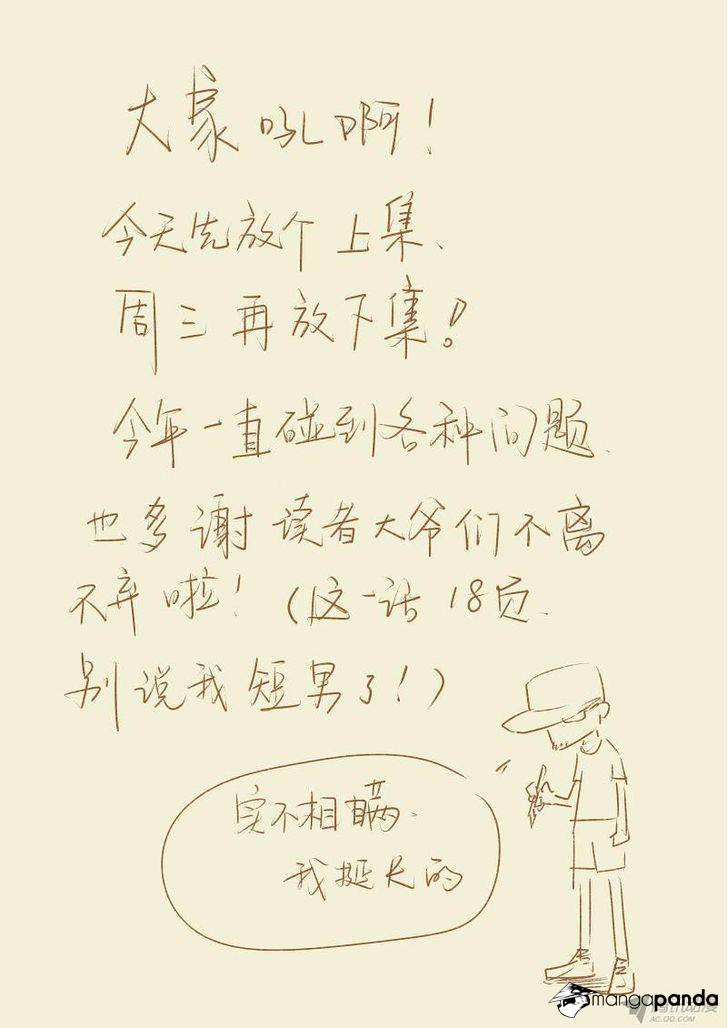 大家吼啊！
今天先放个上集、
周三再放下集！
今年一直碰到各种问题、
也多谢读者大爷们不离
不弃啦！（这一话18页、
别说我短男了！）
实不相瞒、
我挺长的
mangapanda
腾讯动漫
AC.QQ.COM